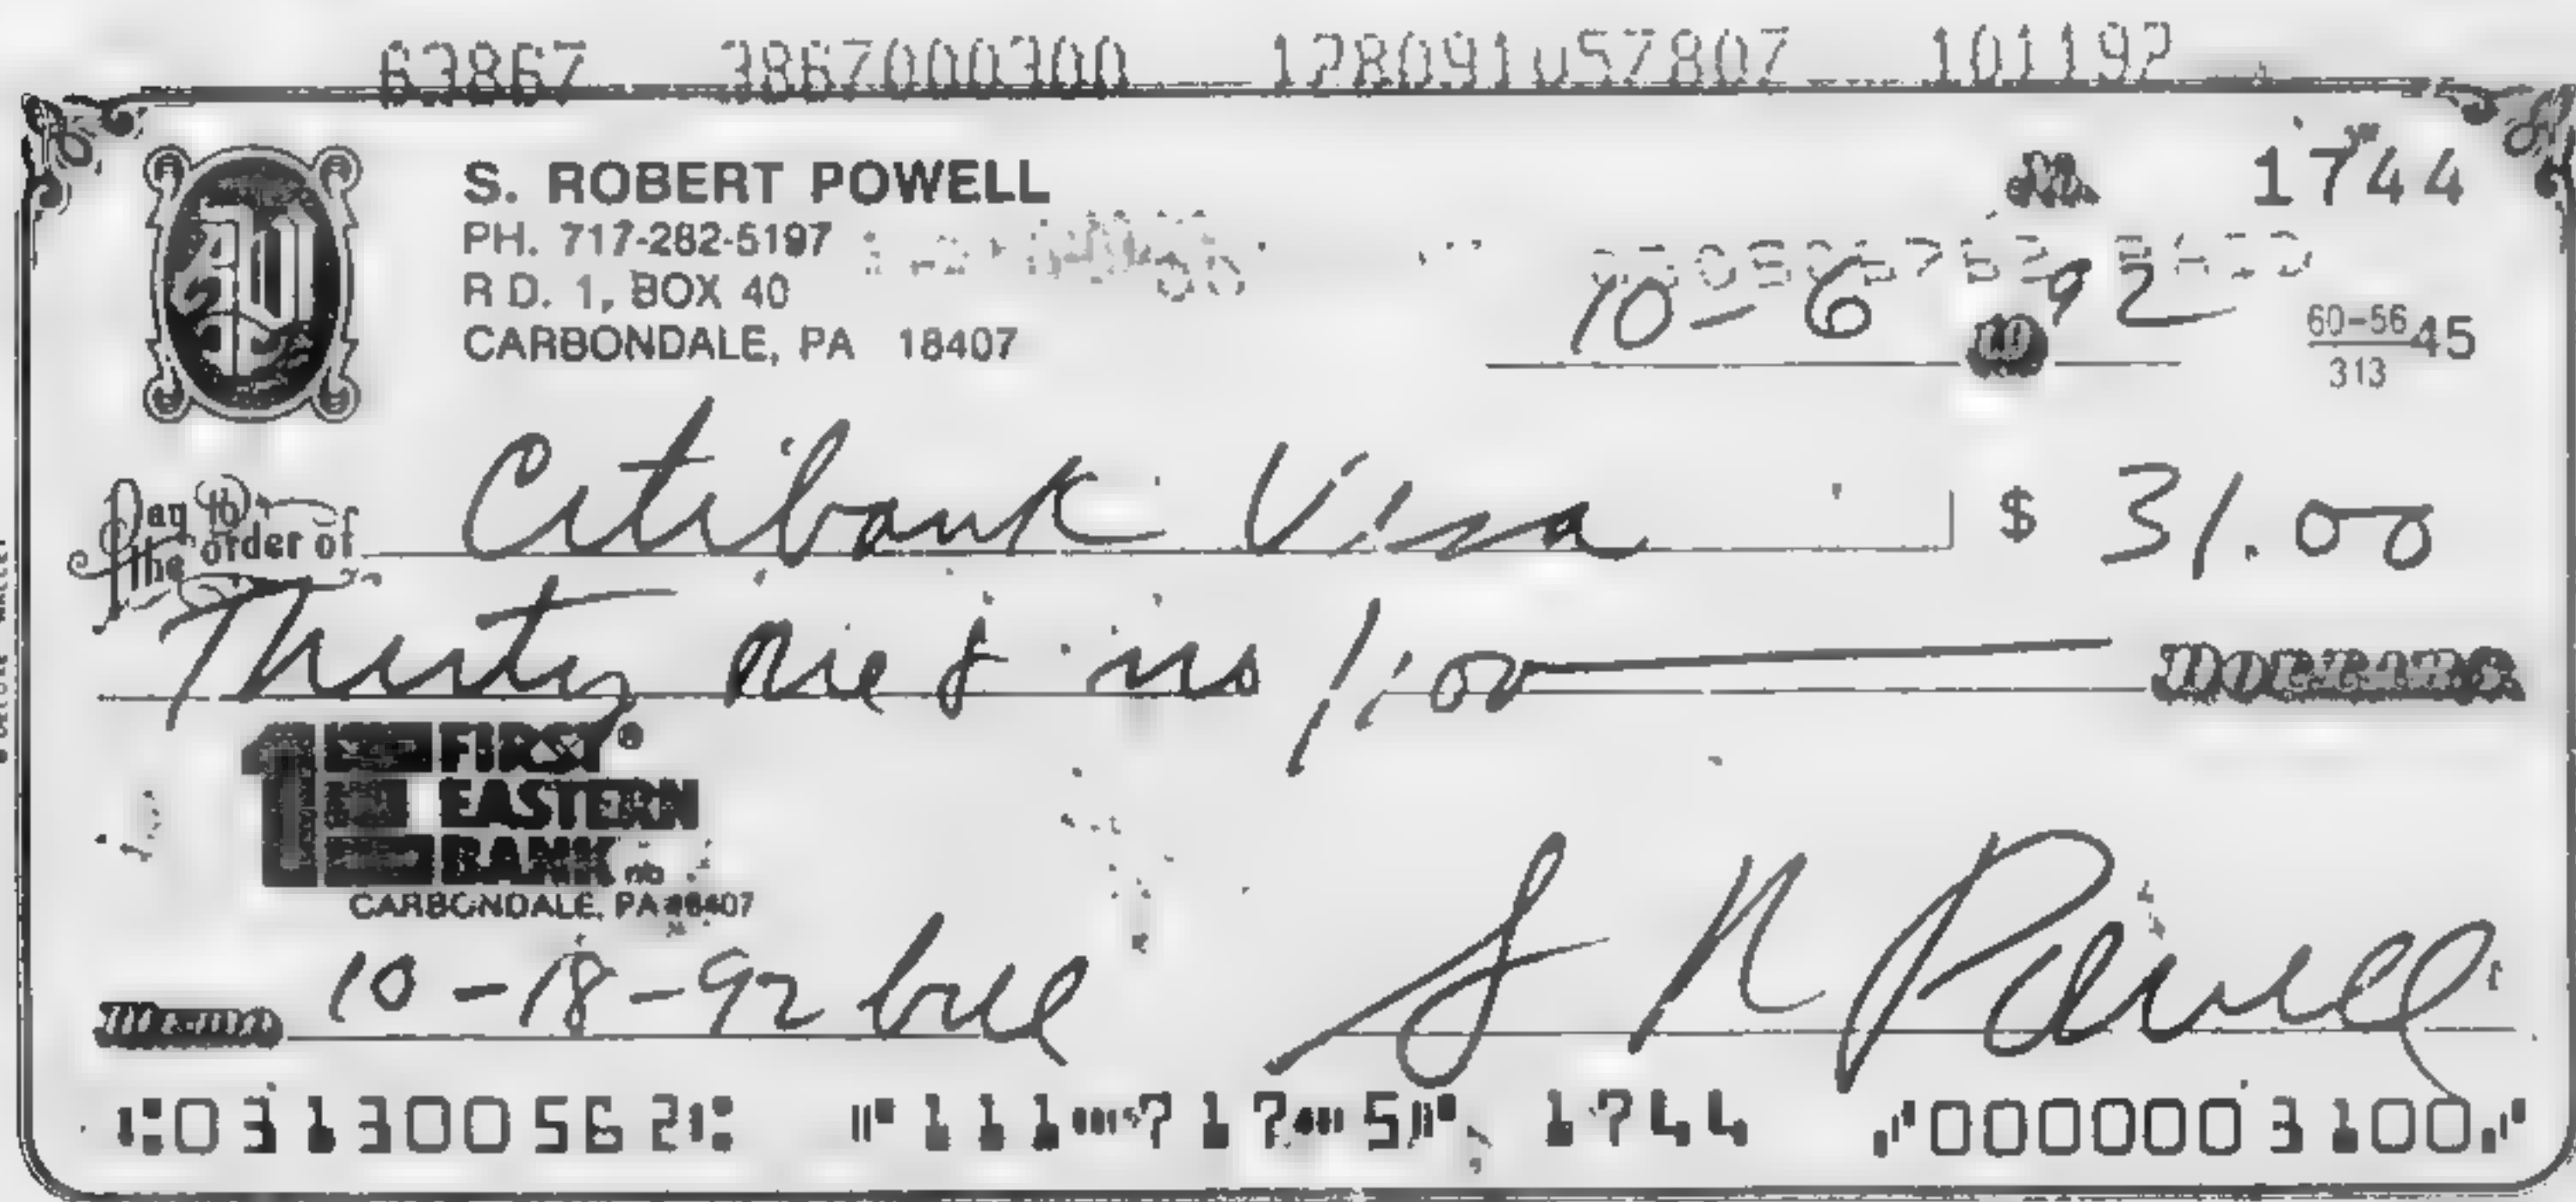 63867 3867000300 128091057807 101192
S. ROBERT POWELL
PH. 717-282-5197
R D. 1, BOX 40
CARBONDALE, PA 18407
No. 1744
10-6 1992
60-56 45
313
Pay to the order of Citibank Visa $ 31.00
Thirty one & no /100 DOLLARS
1E FIRST
EASTERN
BANK nb
CARBONDALE, PA 18407
Memo 10-18-92 bill S R Powell
⑆031300562⑆ ⑈111⑉717⑉5⑈ 1744 ⑈0000003100⑈